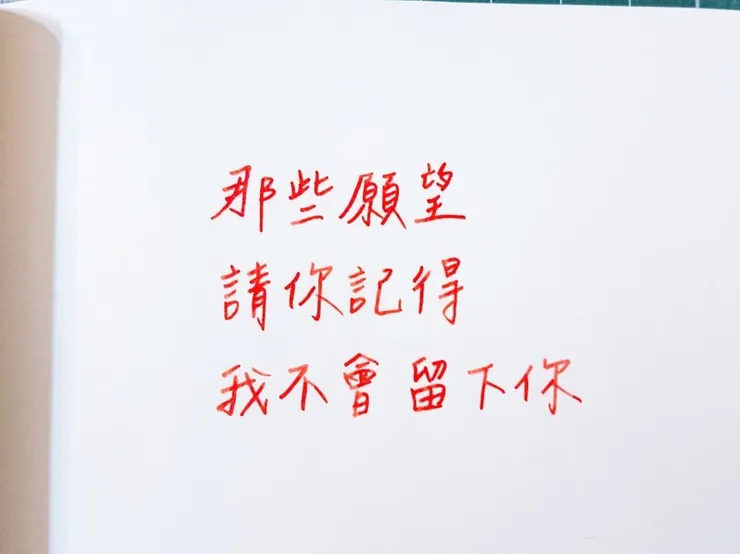 那些願望
請你記得
我不會留下你